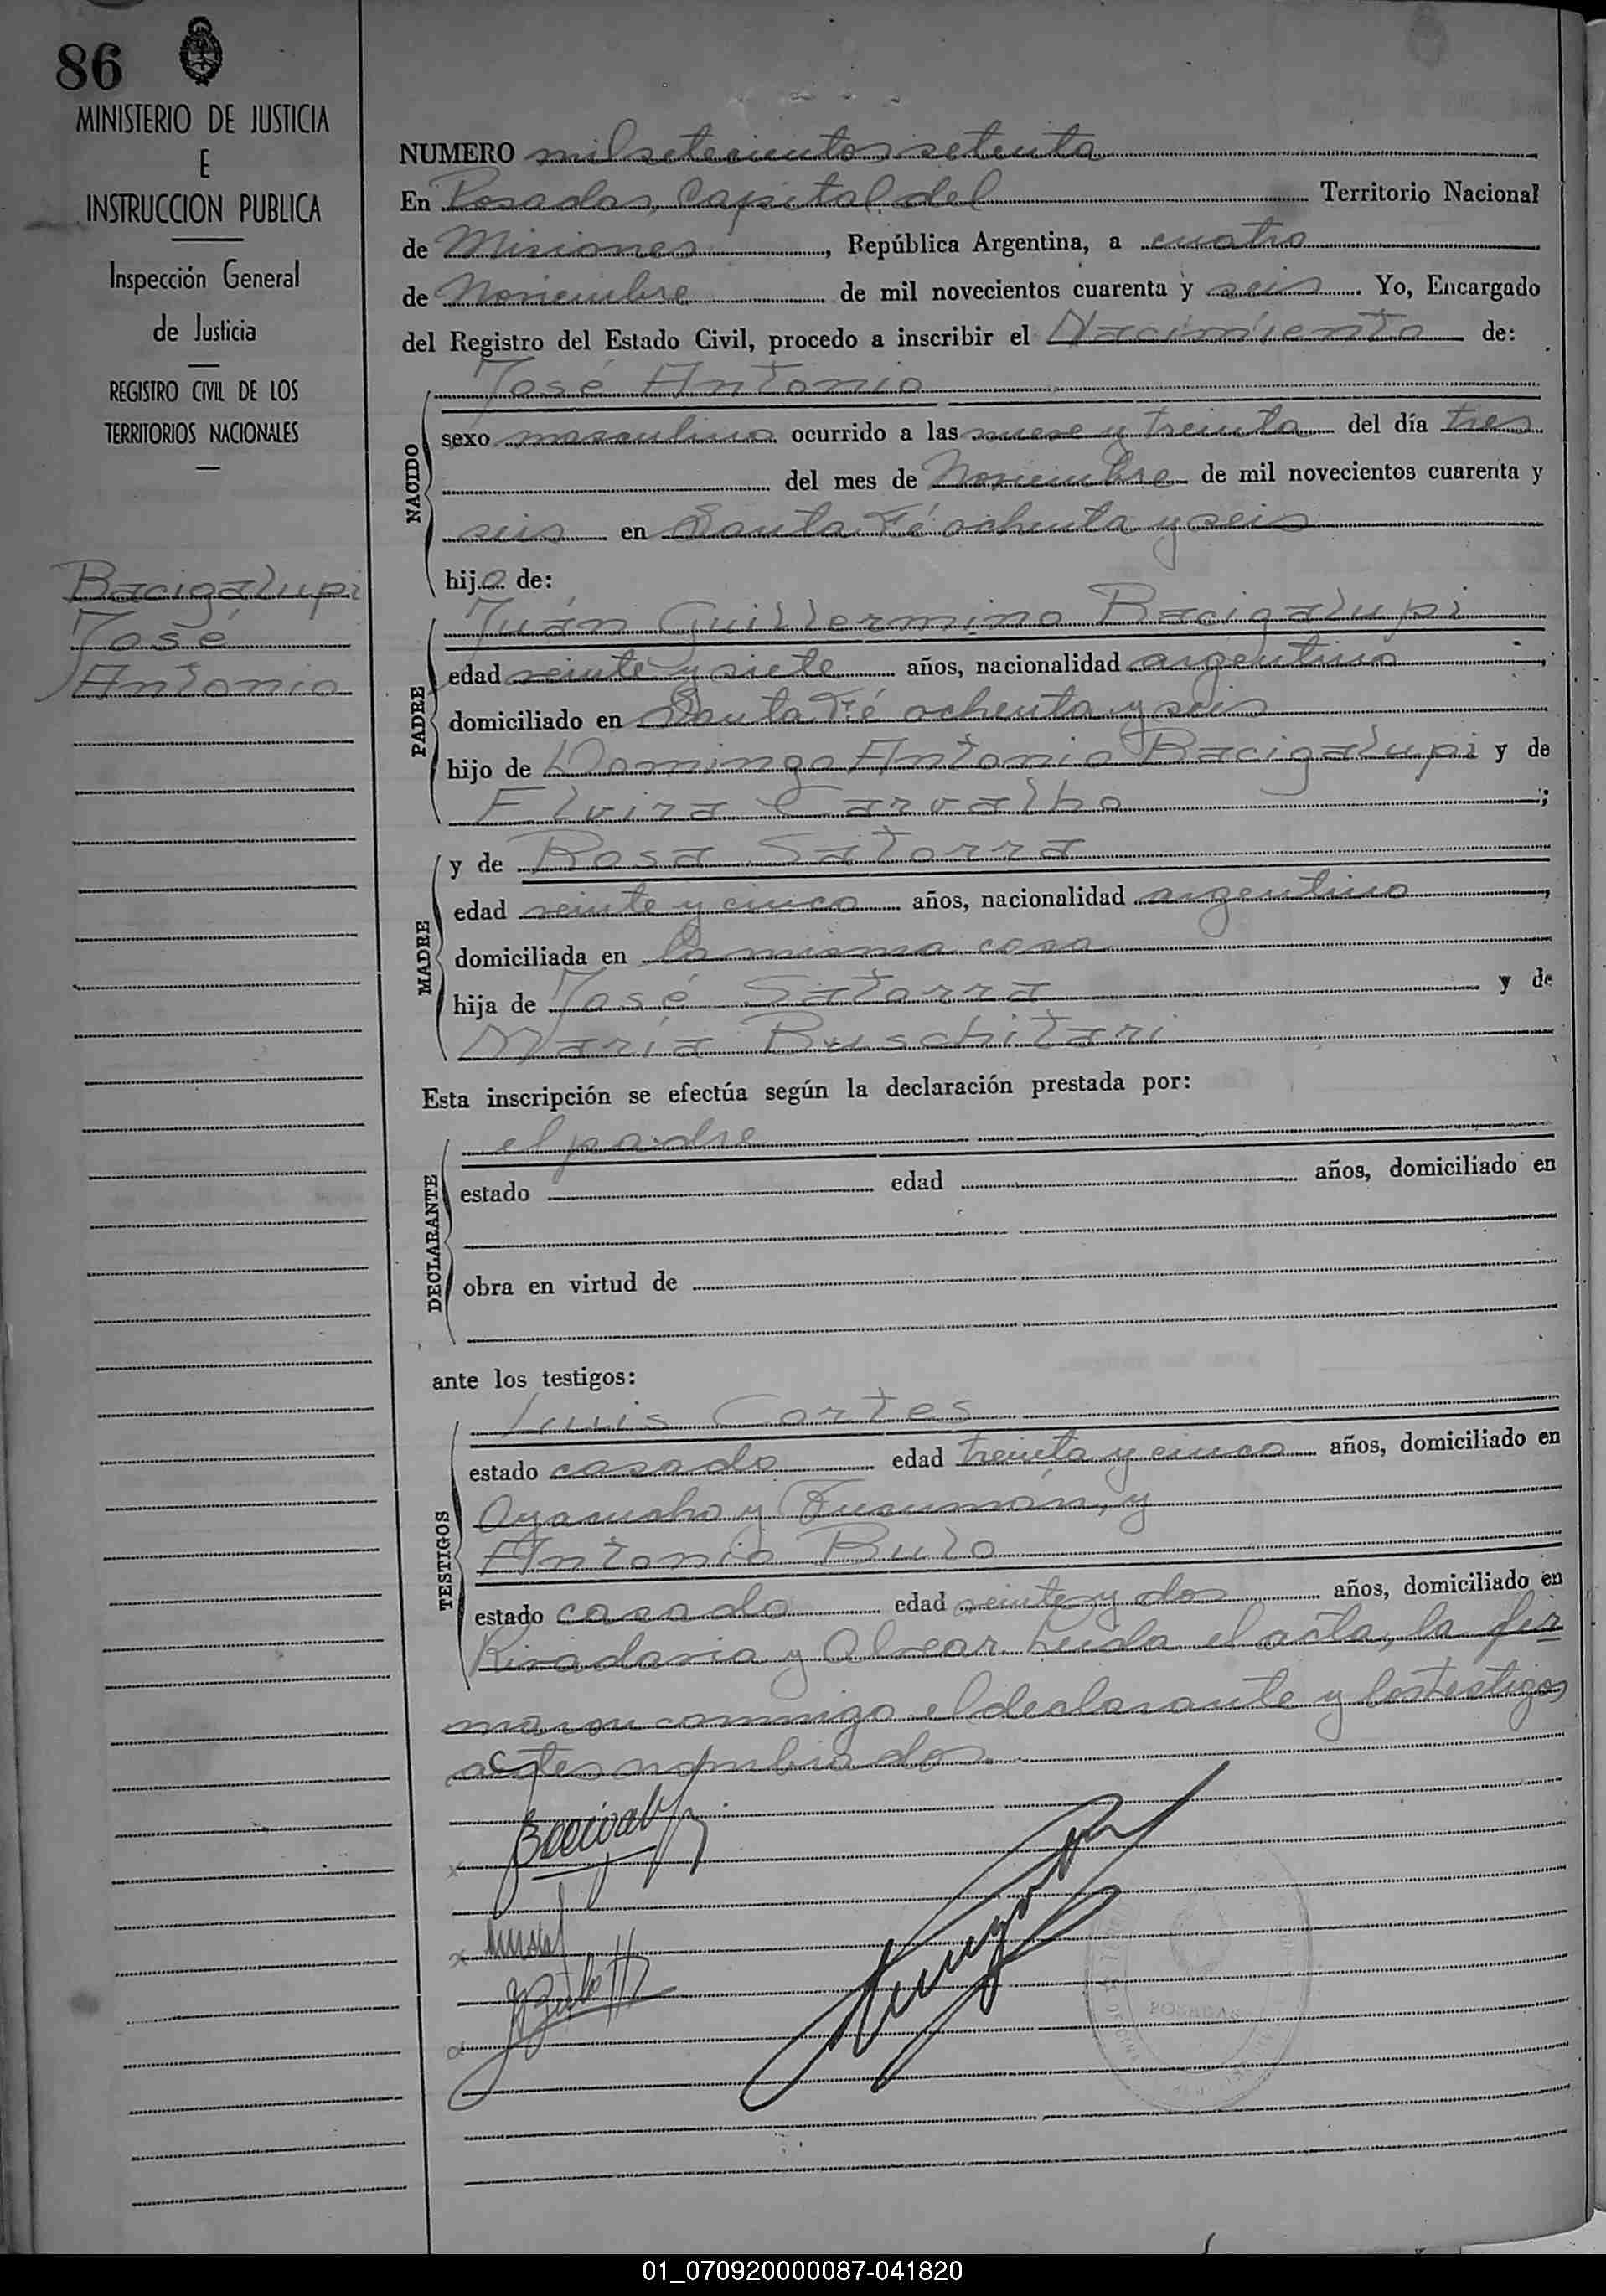 86
MINISTERIO DE JUSTICIA
E
INSTRUCCION PUBLICA
Inspección General
de Justicia
REGISTRO CIVIL DE LOS
TERRITORIOS NACIONALES
Bacigalupi
José
Antonio
NUMERO mil setecientos setenta
En Posadas, Capital del Territorio Nacional
de Misiones, República Argentina, a cuatro
de Noviembre de mil novecientos cuarenta y seis. Yo, Encargado
del Registro del Estado Civil, procedo a inscribir el Nacimiento de:
NACIDO
José Antonio
sexo masculino ocurrido a las nueve y treinta del día tres
del mes de Noviembre de mil novecientos cuarenta y
seis en Santa Fé ochenta y seis
hijo de:
PADRE
Juán Guillermino Bacigalupi
edad veinte y siete años, nacionalidad argentino
domiciliado en Santa Fé ochenta y seis
hijo de Domingo Antonio Bacigalupi y de
Elvira Carvalho;
MADRE
y de Rosa Satorra
edad veinte y cinco años, nacionalidad argentina,
domiciliada en la misma casa
hija de José Satorra y de
María Buschitari
Esta inscripción se efectúa según la declaración prestada por:
DECLARANTE
el padre
estado edad años, domiciliado en
obra en virtud de
ante los testigos:
TESTIGOS
Luis Cortes
estado casado edad treinta y cinco años, domiciliado en
Ayacucho y Tucumán, y
Antonio Bulo
estado casado edad veinte y dos años, domiciliado en
Rivadavia y Alvear. Leida el acta, la fir
maron conmigo el declarante y los testigos
antes nombrados.
POSADAS
01_070920000087-041820